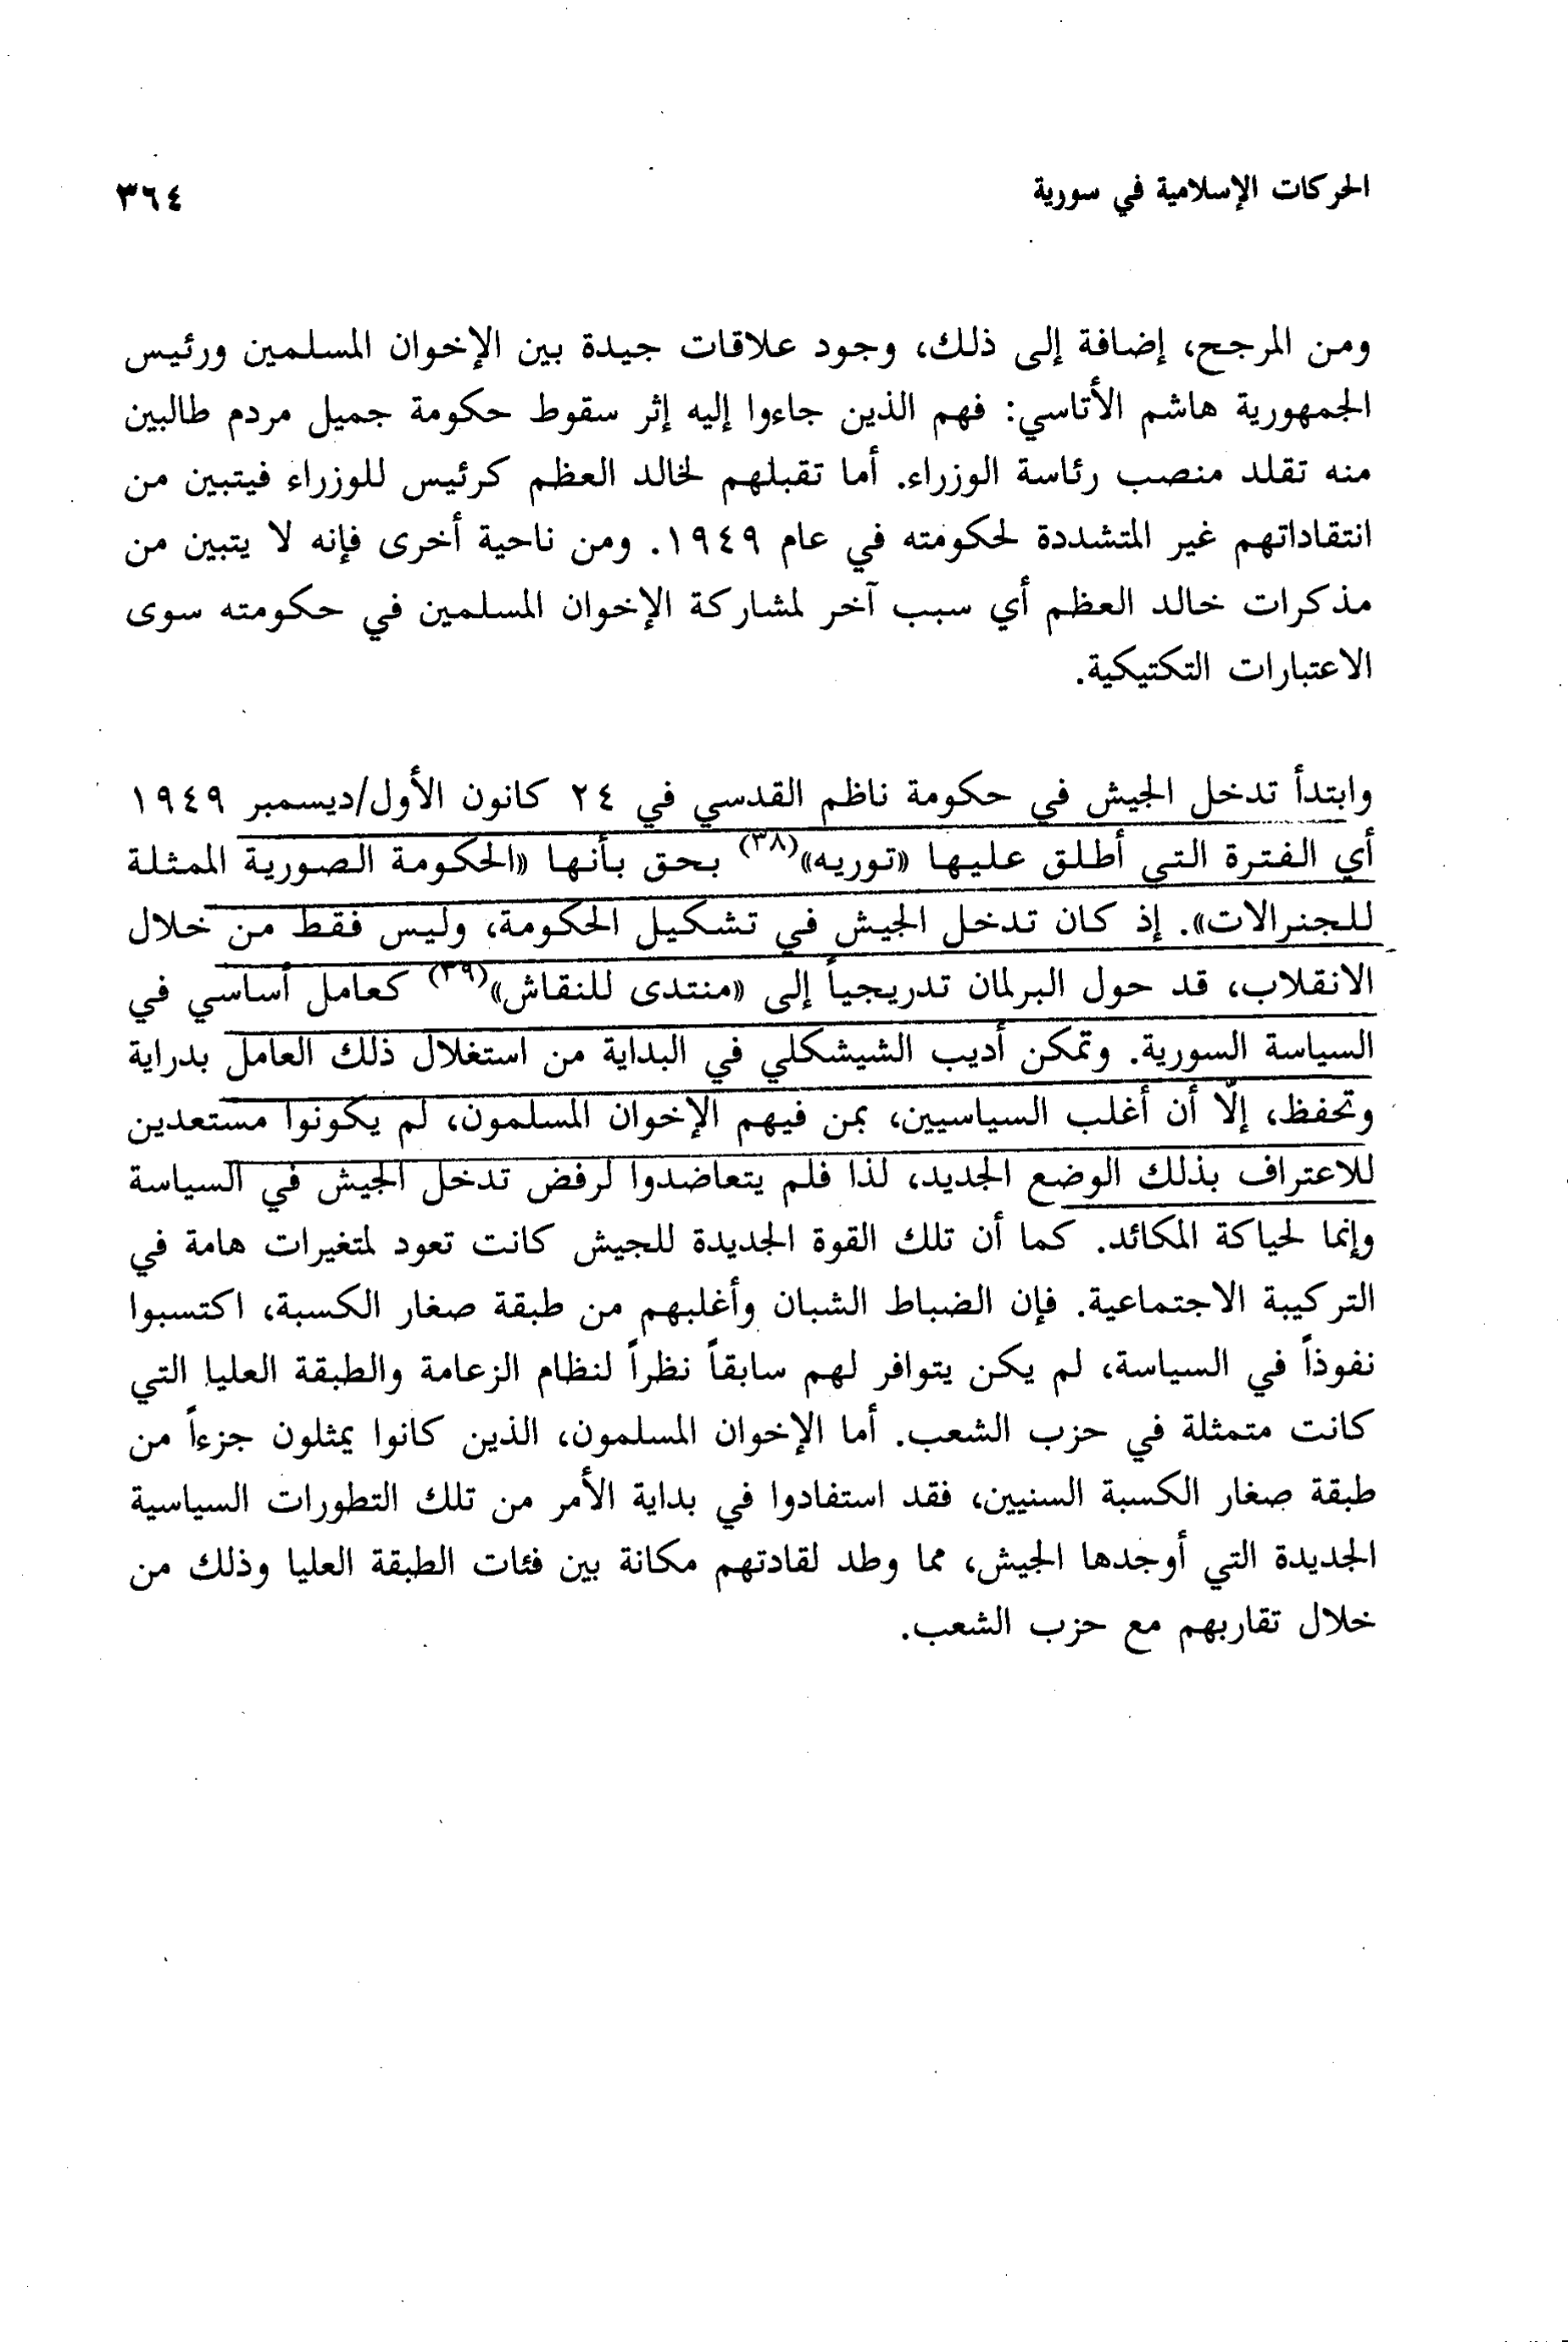 الحركات الإسلامية في سورية
٣٦٤
ومن المرجح، إضافة إلى ذلك، وجود علاقات جيدة بين الإخوان المسلمين ورئيس
الجمهورية هاشم الأتاسي: فهم الذين جاءوا إليه إثر سقوط حكومة جميل مردم طالبين
منه تقلد منصب رئاسة الوزراء. أما تقبلهم لخالد العظم كرئيس للوزراء فيتبين من
انتقاداتهم غير المتشددة لحكومته في عام ١٩٤٩. ومن ناحية أخرى فإنه لا يتبين من
مذكرات خالد العظم أي سبب آخر لمشاركة الإخوان المسلمين في حكومته سوى
الاعتبارات التكتيكية.
وابتدأ تدخل الجيش في حكومة ناظم القدسي في ٢٤ كانون الأول/ديسمبر ١٩٤٩
أي الفترة التي أطلق عليها «توريه»(٣٨) بحق بأنها «الحكومة الصورية الممثلة
للجنرالات». إذ كان تدخل الجيش في تشكيل الحكومة، وليس فقط من خلال
الانقلاب، قد حول البرلمان تدريجياً إلى «منتدى للنقاش»(٣٩) كعامل أساسي في
السياسة السورية. وتمكن أديب الشيشكلي في البداية من استغلال ذلك العامل بدراية
وتحفظ، إلّا أن أغلب السياسيين، بمن فيهم الإخوان المسلمون، لم يكونوا مستعدين
للاعتراف بذلك الوضع الجديد، لذا فلم يتعاضدوا لرفض تدخل الجيش في السياسة
وإنما لحياكة المكائد. كما أن تلك القوة الجديدة للجيش كانت تعود لمتغيرات هامة في
التركيبة الاجتماعية. فإن الضباط الشبان وأغلبهم من طبقة صغار الكسبة، اكتسبوا
نفوذاً في السياسة، لم يكن يتوافر لهم سابقاً نظراً لنظام الزعامة والطبقة العليا التي
كانت متمثلة في حزب الشعب. أما الإخوان المسلمون، الذين كانوا يمثلون جزءاً من
طبقة صغار الكسبة السنيين، فقد استفادوا في بداية الأمر من تلك التطورات السياسية
الجديدة التي أوجدها الجيش، مما وطد لقادتهم مكانة بين فئات الطبقة العليا وذلك من
خلال تقاربهم مع حزب الشعب.